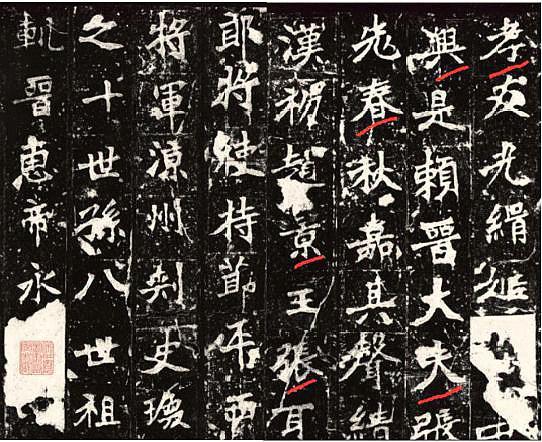 孝友光緝
興是賴晉大夫張
老春秋嘉其聲績
漢初趙景王張耳
郎將使持節平西
將軍涼州刺史瑗
之十世孫八世祖
軌晉惠帝永